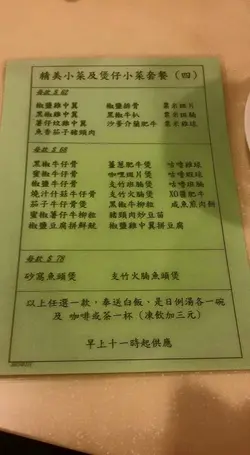 精美小菜及煲仔小菜套餐（四）
每款 $ 62
椒鹽雞中翼 椒鹽排骨 粟米斑片
黑椒雞中翼 黑椒牛扒 粟米斑腩
薯仔炆雞中翼 沙爹金菇肥牛 粟米雞球
魚香茄子豬頸肉
每款 $ 68
黑椒牛仔骨 薑蔥肥牛煲 咕嚕雞球
蜜椒牛仔骨 咖喱斑片煲 咕嚕斑塊
椒鹽牛仔骨 支竹斑腩煲 咕嚕斑腩
燒汁什菇牛仔骨 支竹火腩煲 XO醬肥牛
茄子牛仔骨煲 黑椒牛柳粒 咸魚煎肉餅
蜜椒薯仔牛柳粒 豬頸肉炒豆苗
椒鹽豆腐拼鮮魷 椒鹽雞中翼拼豆腐
每款 $ 78
砂窩魚頭煲 支竹火腩魚頭煲
以上任選一款，奉送白飯，是日例湯各一碗
及 咖啡或茶一杯（凍飲加三元）
早上十一時起供應